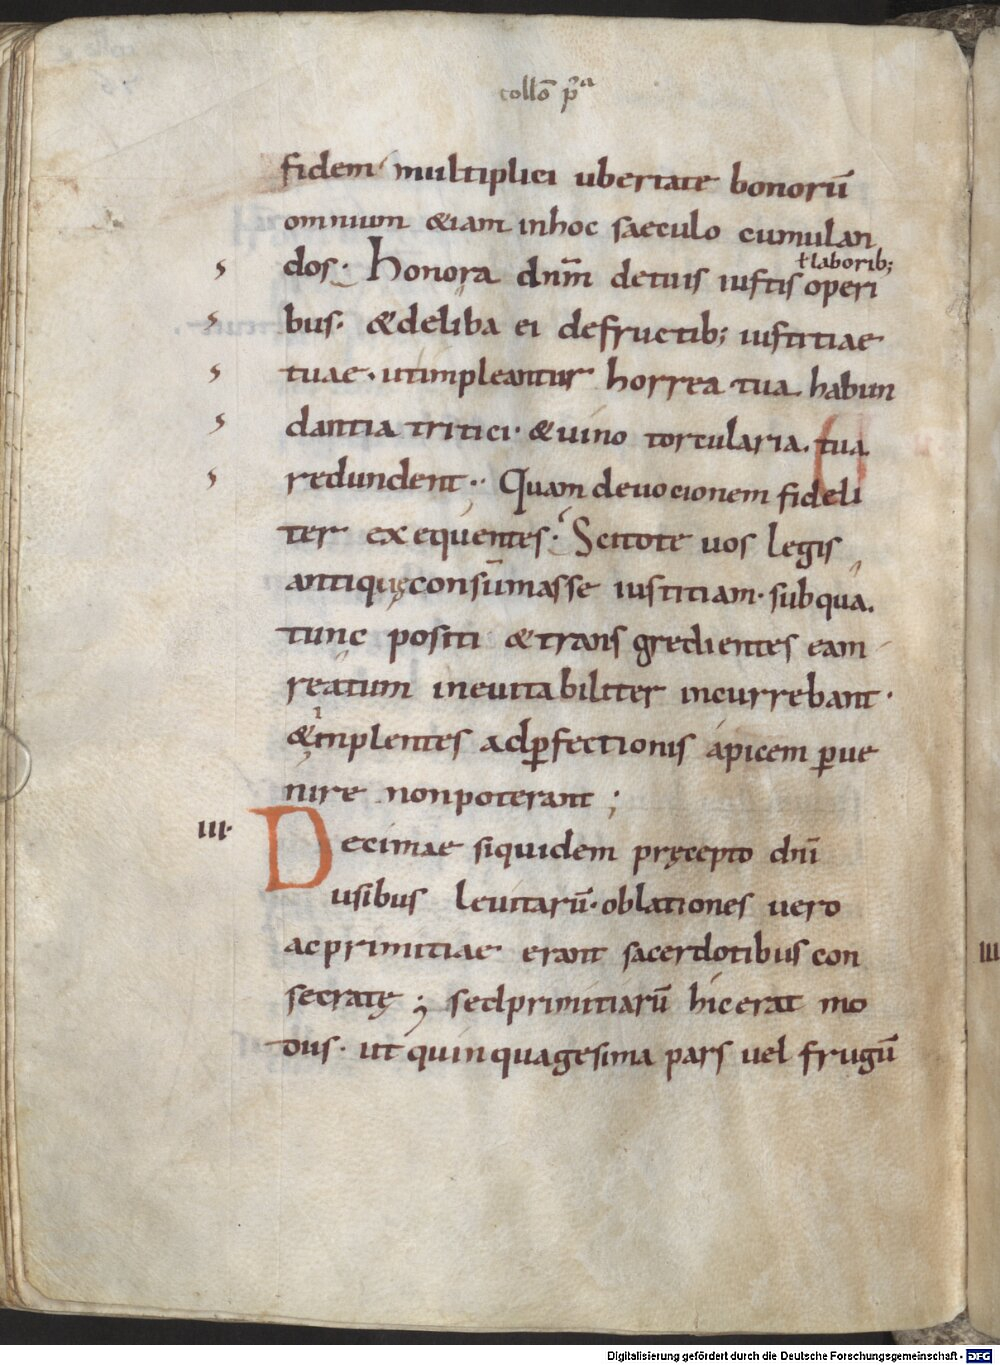 collo̅ p̅ᵃ
fidem multiplici ubertate bonoru̅
omnium &iam inhoc saeculo cumulan
ł laborib;
dos· Honora dn̅m detuis iustis operi
bus· &deliba ei defructib; iustitiae
tuae· utimpleantur horrea tua. habun
dantia tritici· &uino torcularia. tua
redundent·· Quam deuocionem fideli
ter exequentes· Scitote uos legis
antiquęconsu̅masse iustitiam· subqua.
tunc positi &transgredientes eam
reatum ineuitabiliter incurrebant·
&implentes adp̲fectionis apicem p̲ue
nire nonpoterant ;
III· Decimae siquidem pręcepto dn̅i
usibus leuitaru̅· oblationes uero
acprimitiae erant sacerdotibus con
secratę ; sedprimitiaru̅ hicerat mo
dus· ut quinquagesima pars uel frugu̅
III
Digitalisierung gefördert durch die Deutsche Forschungsgemeinschaft - DFG